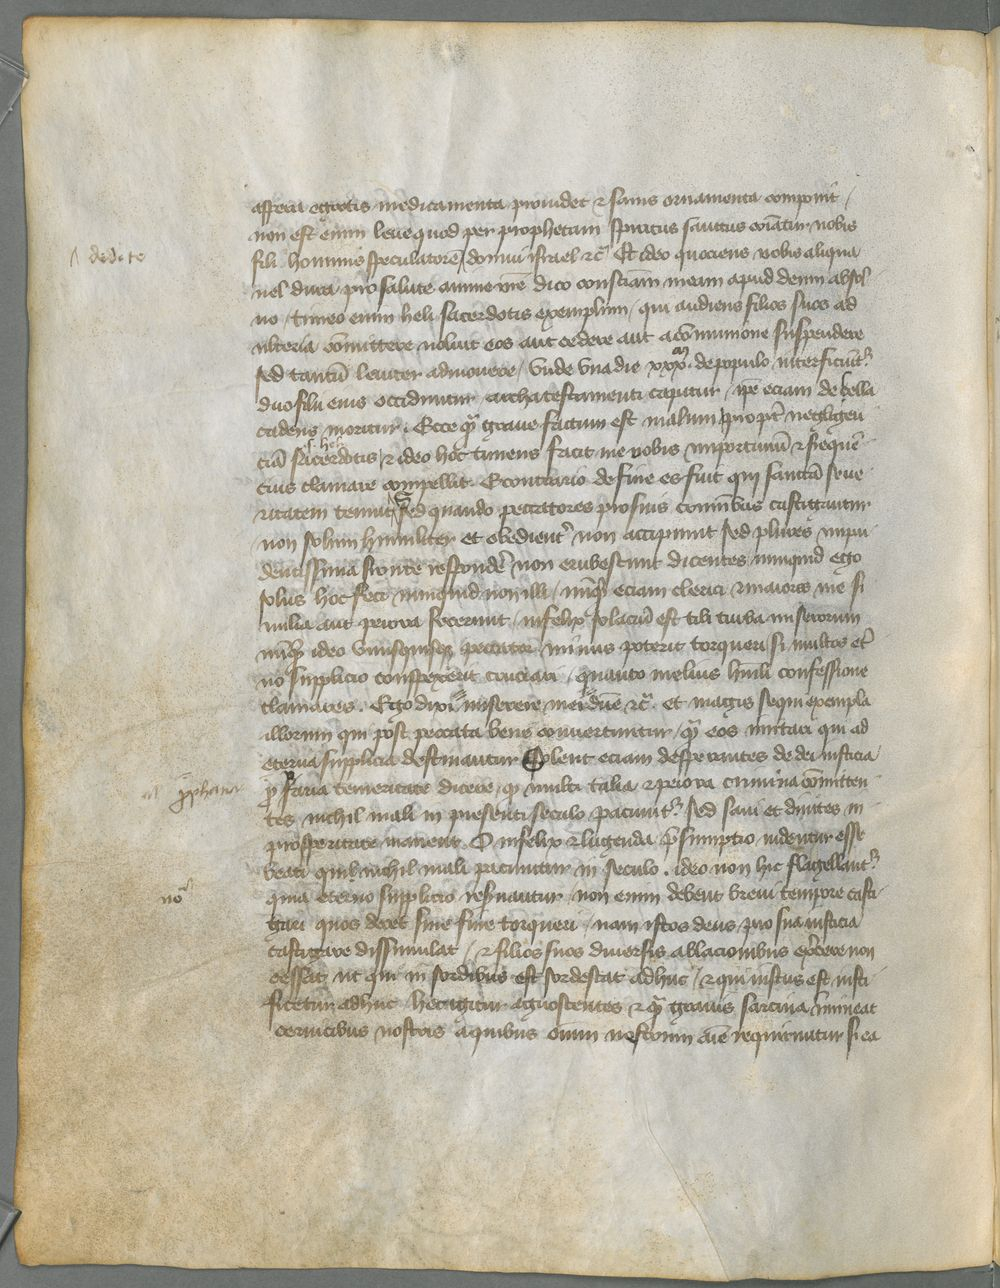 aspera egrotis medicamenta prouidet et sanis ornamenta componit /
non est enim leue quod per prophetam spiritus sanctus cōiatur nobis
fili hominis speculatorē domui israel etc̄ Et ideo quociens uobis aliqua
dedi te
uel dura pro salute anime mee dico consciēciam meam apud deum absol
uo / timeo enim heli sacerdotis exemplum / qui audiens filios suos ad
ulteria cōmittere noluit eos aut cedere aut a cōmunione suspendere
sed tantū leuiter admonere / vnde vna die xxxᵃ de populo interficiūt
duo filii eius occiduntur archa testamenti capitur / ipē eciam de sella
cadens moritur. Ecce qͣ graue factum est malum propt̄ negligen
s. heli
ciā sacerdotis / et ideo hoc timens facit me uobis importunū et frequē
cius clamare compellit Econtrario de finees fuit qui sanctā seue
ritatem tenuit Sed quando peccatores pro suis cͦminibus castigantur
non solum humiliter et obedient̄ non accipiunt sed plures impu
dentissima fronte respondēt non erubescunt dicentes nunquid ego
solus hoc feci nunquid non illi / nūqͥd eciam clerici et maiores me si
milia aut peiora fecerunt / infelix solaciū est tibi turba miserorum
nūqͥd ideo vnusquisqꝫ peccator minus poterit torqueri si multos et̄
no supplicio conspexerit cruciari / quanto melius hūili confessione
clamares. Ego dixi miserere mei dn̄e etc̄ et magis sequi exempla
illorum qui post peccata bene conuertuntur / qͣ eos imitari qui ad
eterna supplicia destinantur Solent eciam desperantes de dei iusticia
prophana
temeritate dicere / qꝫ multi talia et peiora crimina cōmitten
tes nichil mali in presenti seculo paciunt̄ sed sani et diuites in
prosperitate manent O infelix et lugenda p̄sumptio uidentur esse
beati qui nichil mali paciuntur in seculo. ideo non hic flagellant̄
no
quia eterno supplicio reseruantur / non enim debent breui tempore casti
gari quos decet sine fine torqueri / nam istos deus pro sua iusticia
castigare dissimulat / et filios suos diuersis ablacionibus exͣcere non
cessat ut qui in sordibus est sordescat adhuc / et qui iustus est iusti
ficetur adhuc hec igitur agnoscentes et qͣ grauis sarcina īmineat
ceruicibus nostris a quibus oīum uestrum aīe requiruntur si ea